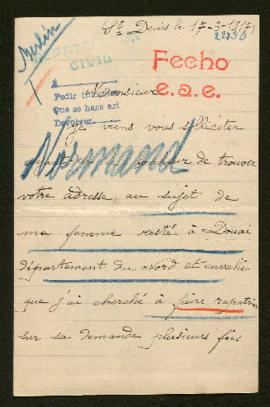 Berlin
St Denis le 17-3-1917
CIVIL
Fecho
e.a.e.
A
Pedir
Que se haca asi
Devolver
Monsieur
Je viens vous solliciter
Normand
de trouver
votre adresse, au sujet de
ma femme resté à Douai
département du Nord et envahi
que j'ai cherché à faire rapatrier
sur sa demande plusieurs fois